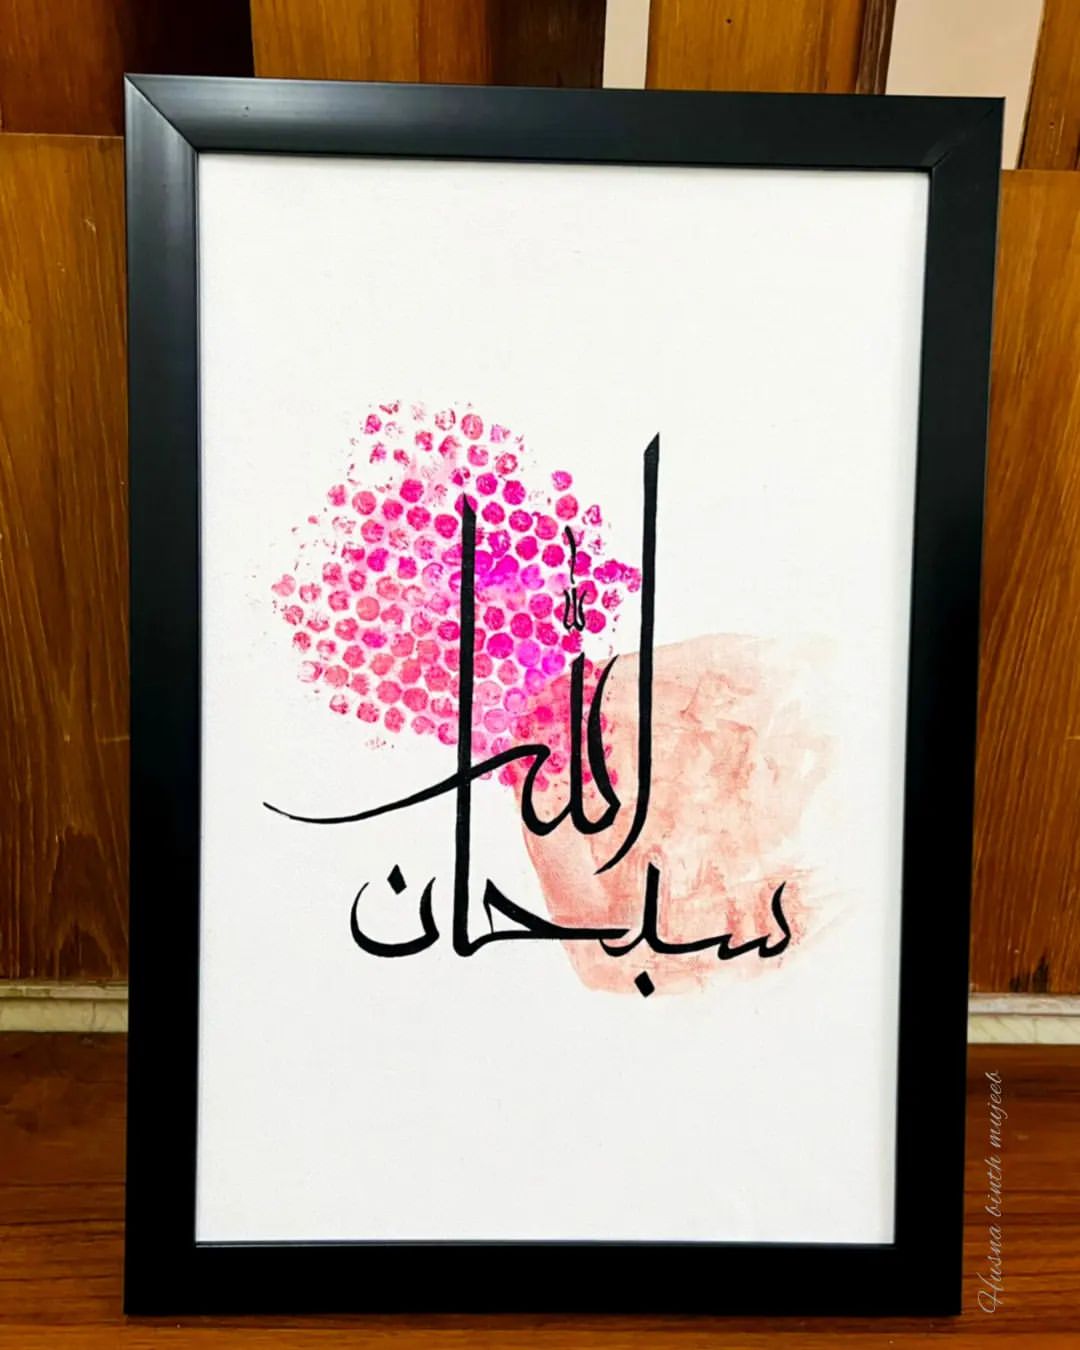 سبحان
الله
Husna binth mujeeb